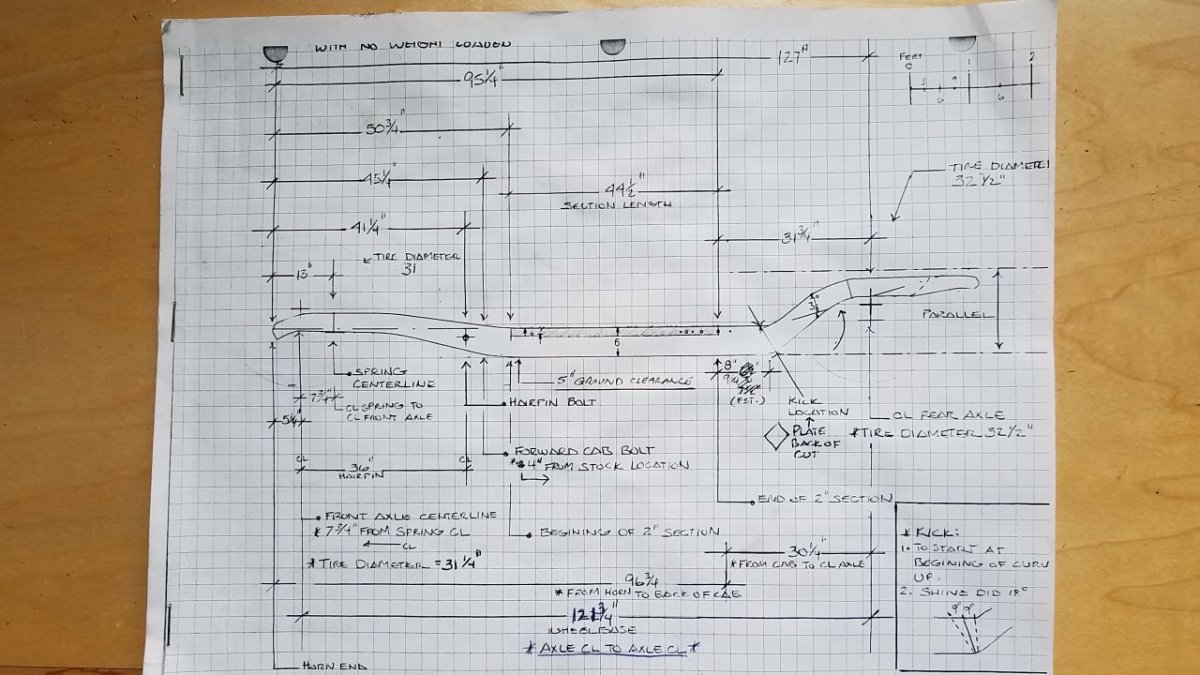 WITH NO WEIGHT LOADED
127"
95 1/4"
FEET
0
1
2
3
9
6
6
50 3/4"
45 1/4"
44 1/2"
SECTION LENGTH
TIRE DIAMETER
32 1/2"
41 1/4"
31 3/4"
TIRE DIAMETER
31
13"
PARALLEL
6
SPRING
CENTERLINE
5" GROUND CLEARANCE
8"
9 1/4
(EST.)
7 3/4"
CL SPRING TO
CL FRONT AXLE
HAIRPIN BOLT
KICK
LOCATION
5 1/4"
PLATE
BACK OF
CUT
CL REAR AXLE
*TIRE DIAMETER 32 1/2"
CL
CL
36"
HAIRPIN
FORWARD CAB BOLT
4" FROM STOCK LOCATION
END OF 2" SECTION
FRONT AXLE CENTERLINE
* 7 3/4" FROM SPRING CL
CL
BEGINING OF 2" SECTION
* TIRE DIAMETER = 31 1/4"
30 1/4"
*FROM CAB TO CL AXLE
* KICK:
1. TO START AT
BEGINING OF CURV
UP.
2. SHINE DID 18°
9° 9°
96 3/4
* FROM HORN TO BACK OF CAB
121 3/4"
WHEELBASE
* AXLE CL TO AXLE CL *
HORN END